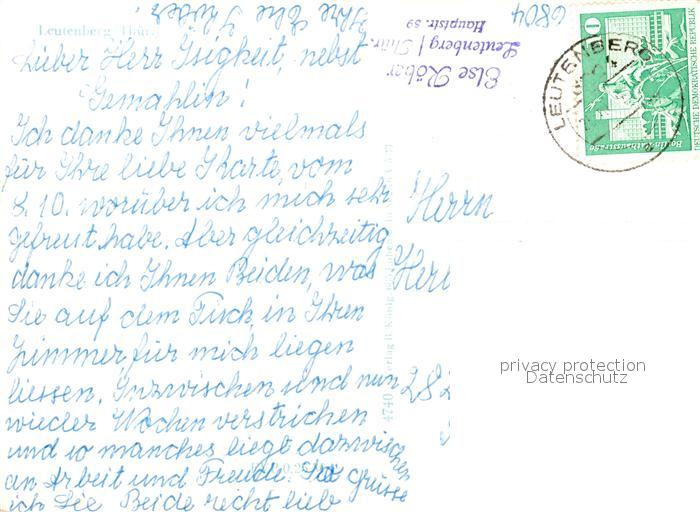 Leutenberg Thür.
Lieber Herr Isigkeit, nebst
Gemahlin!
Ich danke Ihnen vielmals
für Ihre liebe Karte, vom
8. 10. worüber ich mich sehr
gefreut habe. Aber gleichzeitig
danke ich Ihnen Beiden, was
Sie auf dem Tisch, in Ihren
Zimmer, für mich liegen
liessen. Inzwischen sind nun
wieder Wochen verstrichen
und so manches liegt dazwischen
an Arbeit und Freude. So grüsse
ich Sie Beide recht lieb
Ihre Else Röber
Else Röber
Leutenberg / Thür.
Hauptstr. 59
6804
LEUTENBERG
10
Berlin, Rathausstraße
DEUTSCHE DEMOKRATISCHE REPUBLIK
Herrn
282
4740
Verlag B. König,
privacy protection
Datenschutz